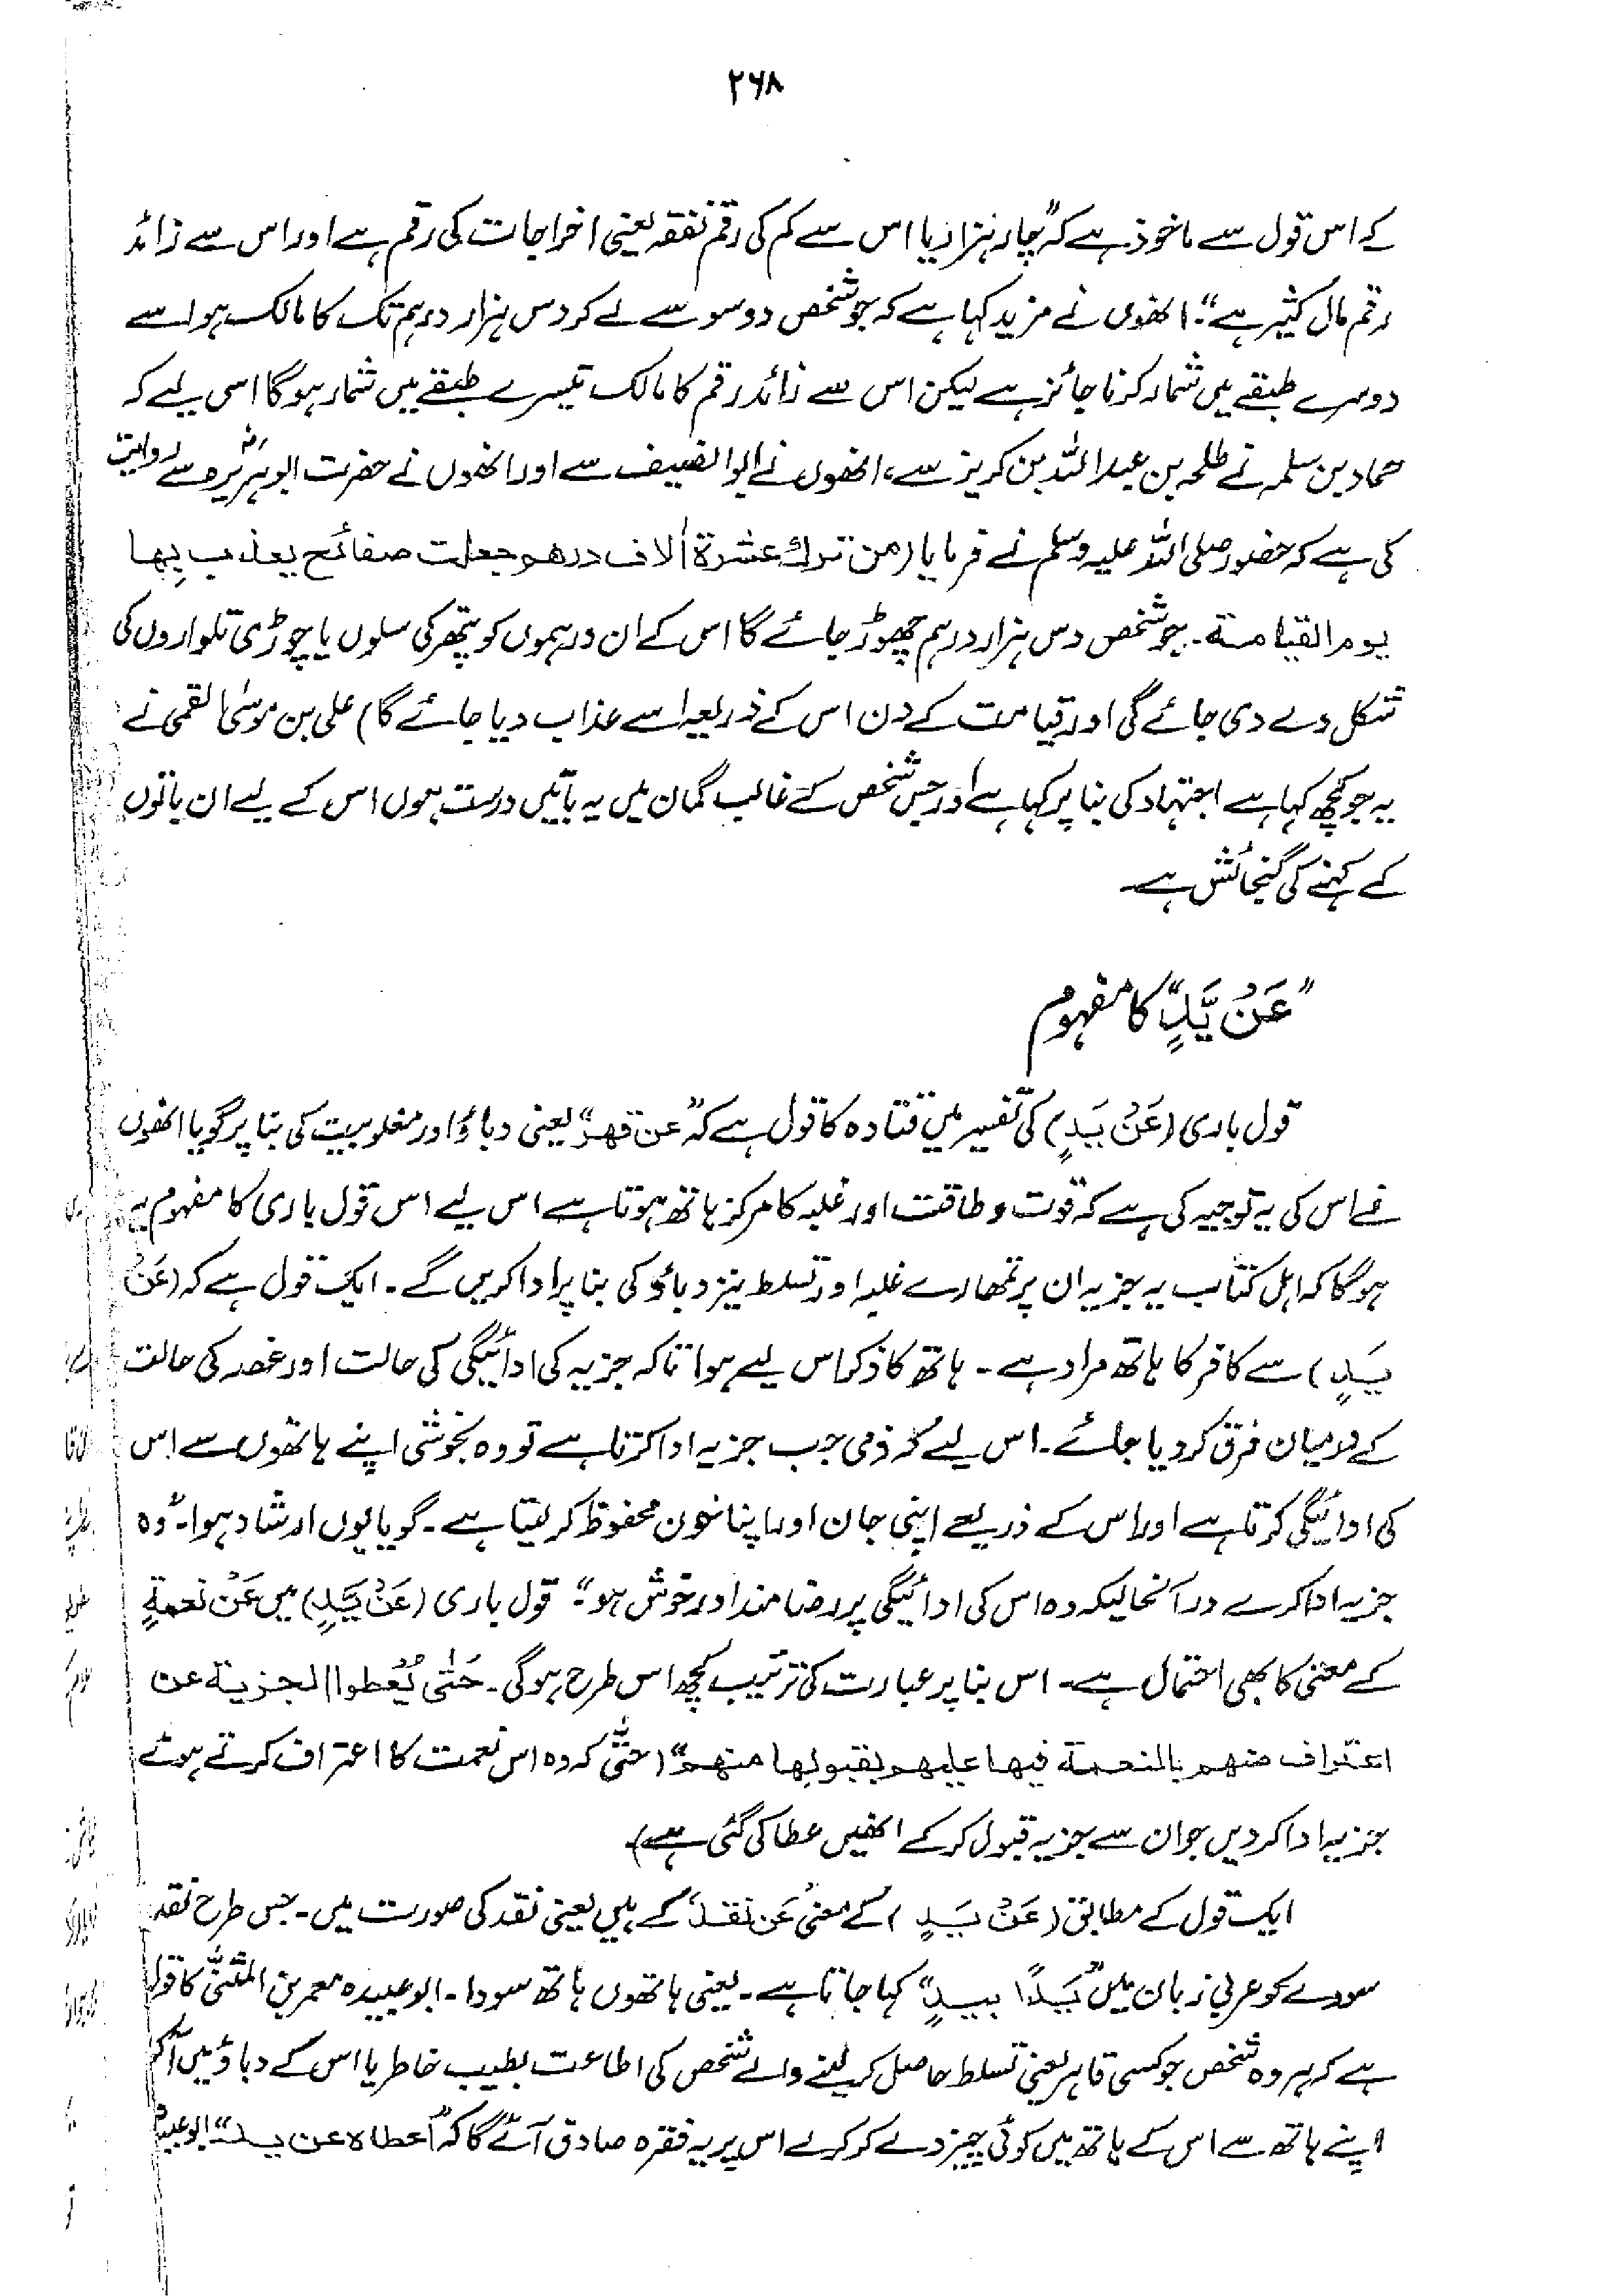 ۲۶۸
کے اس قول سے ماخوذ ہے کہ "چار ہزار یا اس سے کم کی رقم نفقہ یعنی اخراجات کی رقم ہے اور اس سے زائد
رقم مال کثیر ہے"۔ انھوں نے مزید کہا ہے کہ جو شخص دو سو سے لے کر دس ہزار درہم تک کا مالک ہو اسے
دوسرے طبقے میں شمار کرنا جائز ہے لیکن اس سے زائد رقم کا مالک تیسرے طبقے میں شمار ہوگا اسی لیے کہ
حماد بن سلمہ نے طلحہ بن عبداللہ بن کریز سے، انھوں نے ابوالضیف سے اور انھوں نے حضرت ابوہریرہؓ سے روایت
کی ہے کہ حضور صلی اللہ علیہ وسلم نے فرمایا (من ترك عشرة الاف درهم جعلت صفائح يعذب بها
يوم القيامة۔ جو شخص دس ہزار درہم چھوڑ جائے گا اس کے ان درہموں کو پتھر کی سلوں یا چوڑی تلواروں کی
شکل دے دی جائے گی اور قیامت کے دن اس کے ذریعہ اسے عذاب دیا جائے گا) علی بن موسیٰ القمی نے
یہ جو کچھ کہا ہے اجتہاد کی بنا پر کہا ہے اور جس شخص کے غالب گمان میں یہ باتیں درست ہوں اس کے لیے ان باتوں
کے کہنے کی گنجائش ہے۔
"عَنْ يَّدٍ" کا مفہوم
قول باری (عَنْ يَدٍ) کی تفسیر میں قتادہ کا قول ہے کہ "عن قهر" یعنی دباؤ اور مغلوبیت کی بنا پر گویا انھوں
نے اس کی یہ توجیہ کی ہے کہ قوت و طاقت اور غلبہ کا مرکز ہاتھ ہوتا ہے اس لیے اس قول باری کا مفہوم یہ
ہوگا کہ اہل کتاب یہ جزیہ ان پر تمھارے غلبہ اور تسلط نیز دباؤ کی بنا پر ادا کریں گے۔ ایک قول ہے کہ (عَنْ
يَدٍ) سے کافر کا ہاتھ مراد ہے۔ ہاتھ کا ذکر اس لیے ہوا تاکہ جزیہ کی ادائیگی کی حالت اور غصہ کی حالت
کے درمیان فرق کر دیا جائے۔ اس لیے کہ ذمی جب جزیہ ادا کرتا ہے تو وہ بخوشی اپنے ہاتھوں سے اس
کی ادائیگی کرتا ہے اور اس کے ذریعے اپنی جان اور اپنا خون محفوظ کر لیتا ہے۔ گویا یوں ارشاد ہوا۔ "وہ
جزیہ ادا کرے درآنحالیکہ وہ اس کی ادائیگی پر رضامند اور خوش ہو"۔ قول باری (عَنْ يَدٍ) میں عَنْ نعمةٍ
کے معنی کا بھی احتمال ہے۔ اس بنا پر عبارت کی ترتیب کچھ اس طرح ہوگی۔ حَتّٰى يُعْطوا الجزية عن
اعتراف منهم بالنعمة فيها عليهم بقبولها منهم" (حتّٰی کہ وہ اس نعمت کا اعتراف کرتے ہوئے
جزیہ ادا کر دیں جو ان سے جزیہ قبول کر کے انھیں عطا کی گئی ہے)۔
ایک قول کے مطابق (عَنْ يَدٍ) کے معنی "عَن نقد" کے ہیں یعنی نقد کی صورت میں۔ جس طرح نقد
سودے کو عربی زبان میں "يَدًا بيدٍ" کہا جاتا ہے۔ یعنی ہاتھوں ہاتھ سودا۔ ابو عبیدہ معمر بن المثنّٰی کا قول
ہے کہ ہر وہ شخص جو کسی قاہر یعنی تسلط حاصل کر لینے والے شخص کی اطاعت بطیب خاطر یا اس کے دباؤ میں آکر
اپنے ہاتھ سے اس کے ہاتھ میں کوئی چیز دے کر کرے اس پر یہ فقرہ صادق آئے گا کہ "اعطاه عن يد" ابوعبیدہ